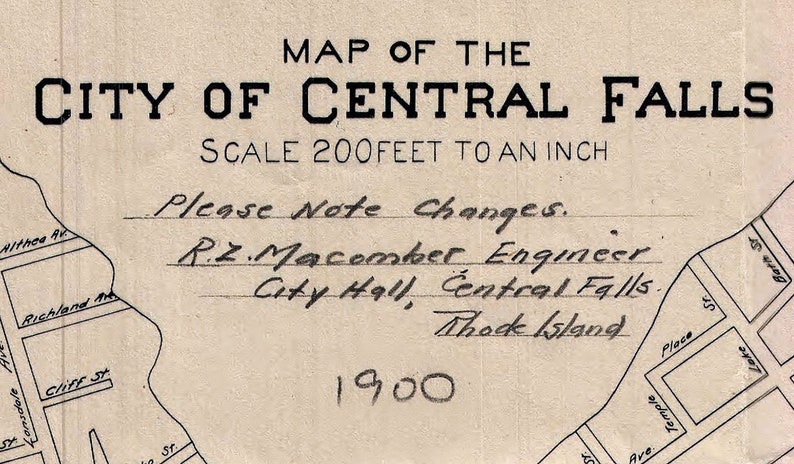 MAP OF THE
CITY OF CENTRAL FALLS
SCALE 200 FEET TO AN INCH
Please Note Changes.
R.Z. Macomber Engineer
City Hall, Central Falls.
Rhode Island
1900
Althea Av.
Richland Av.
Cliff St.
Lonsdale Ave
St.
St.
Barn St.
St.
Place
Lake
Temple
Ave.
St.